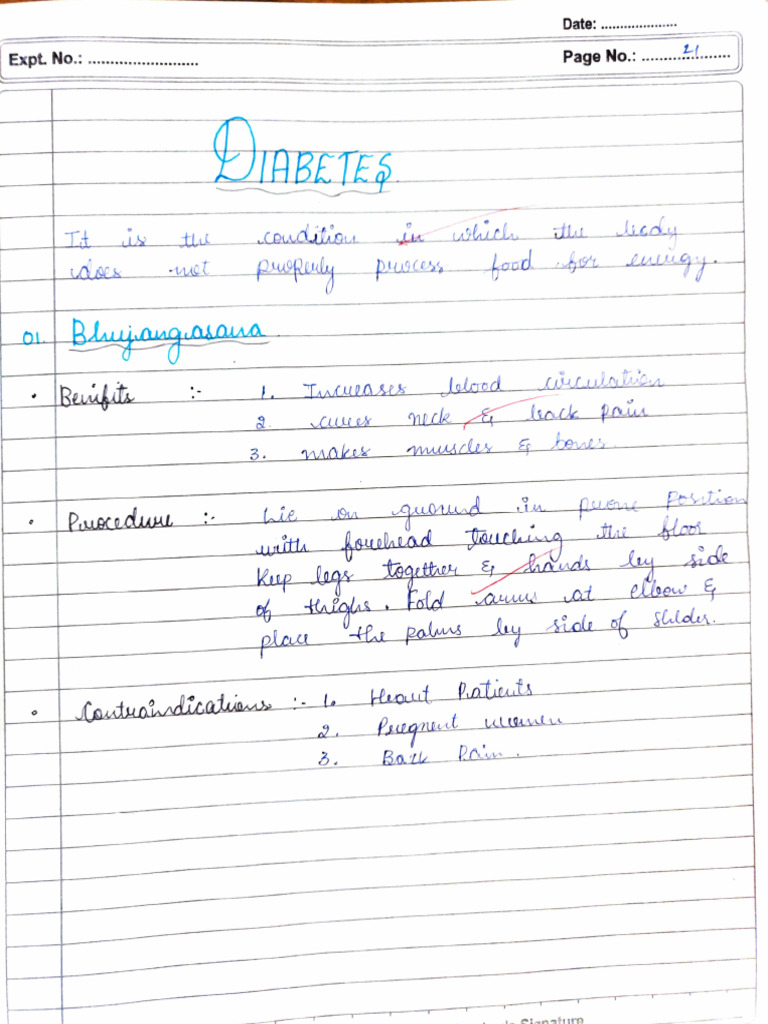 Date: ....................
Expt. No.: .........................
Page No.: ........21........
DIABETES
It is the condition in which the body
does not properly process food for energy.
01. Bhujangasana
• Benifits :- 1. Increases blood circulation
2. cures neck & back pain
3. makes muscles & bones
• Procedure :- Lie on ground in prone position
with forehead touching the floor
Keep legs together & hands by side
of thighs. Fold arms at elbow &
place the palms by side of Shlder.
• Contraindications :- 1. Heart Patients
2. Pregnent women
3. Back Pain.
Signature